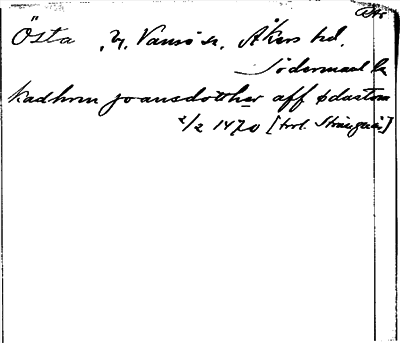 Östa, Y. Vansö sn, Åkers hd,
Södermanl. l.
kadhrin joansdotther aff ødastom
2/2 1470 [trol. Strängnäs]